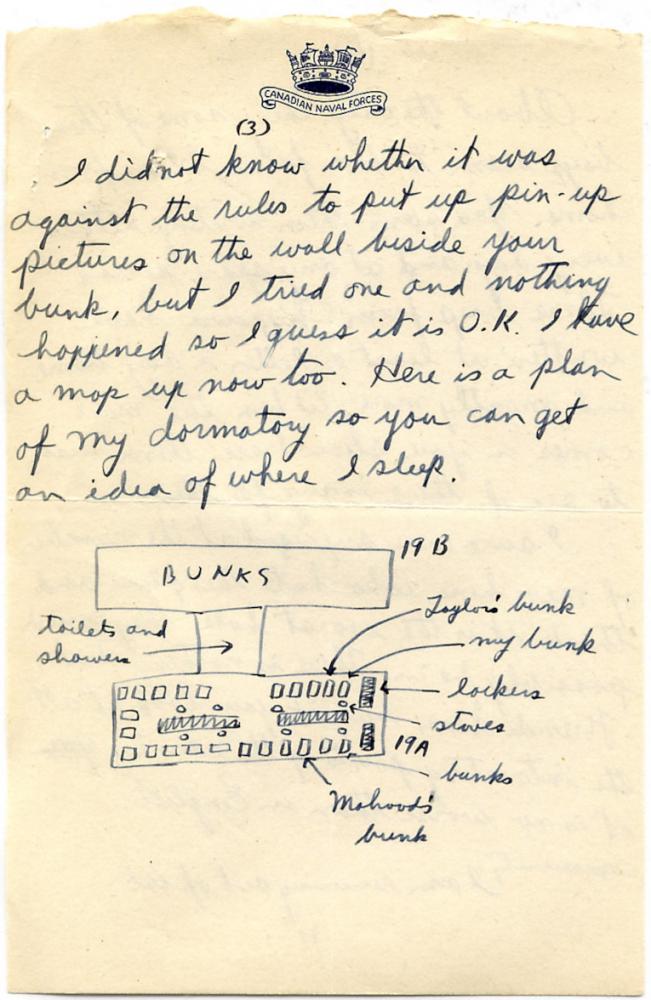 CANADIAN NAVAL FORCES
(3)
I did not know whether it was
against the rules to put up pin-up
pictures on the wall beside your
bunk, but I tried one and nothing
happened so I guess it is O.K. I have
a map up now too. Here is a plan
of my dormatory so you can get
an idea of where I sleep.
19B
BUNKS
Taylor's bunk
toilets and
showers
my bunk
lockers
stoves
19A
bunks
Mahood's
bunk